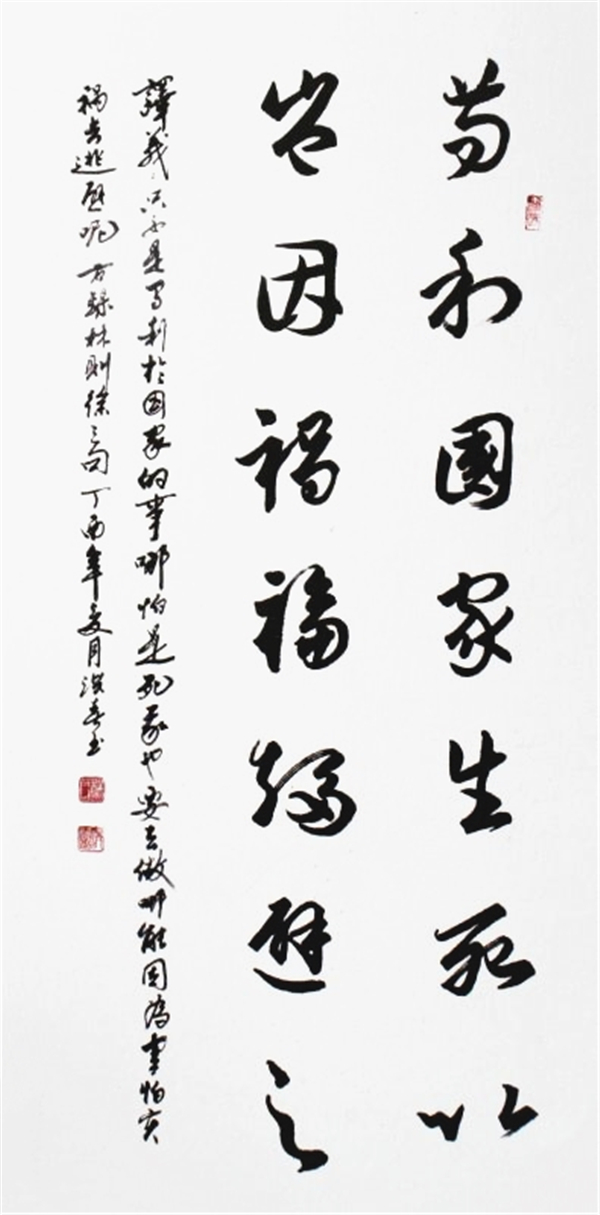 苟利國家生死以
豈因禍福趨避之
譯義只要是有利於國家的事哪怕是死我也要去做哪能因為害怕灾
禍去逃避呢 右錄林則徐之句丁酉年夏月